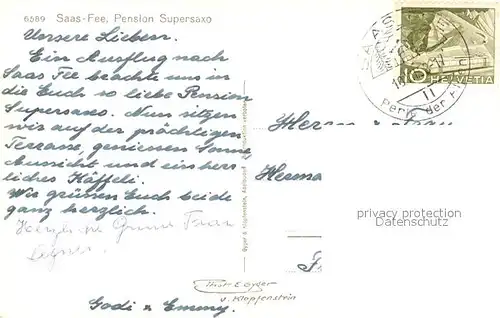 6589 Saas-Fee, Pension Supersaxo
Unsere Lieben.
Ein Ausflug nach
Saas Fee brachte uns in
die Euch so liebe Pension
Supersaxo. Nun sitzen
wir auf der prächtigen
Terrasse, geniessen Sonne
Aussicht und ein herr
liches Käffeli.
Wir grüssen Euch beide
ganz herzlich.
Godi & Emmy.
Gyger & Klopfenstein, Adelboden
E Gyger
v. Klopfenstein
Herrn
Herma
privacy protection
DATENSCHUTZ
10 HELVETIA
Perle der